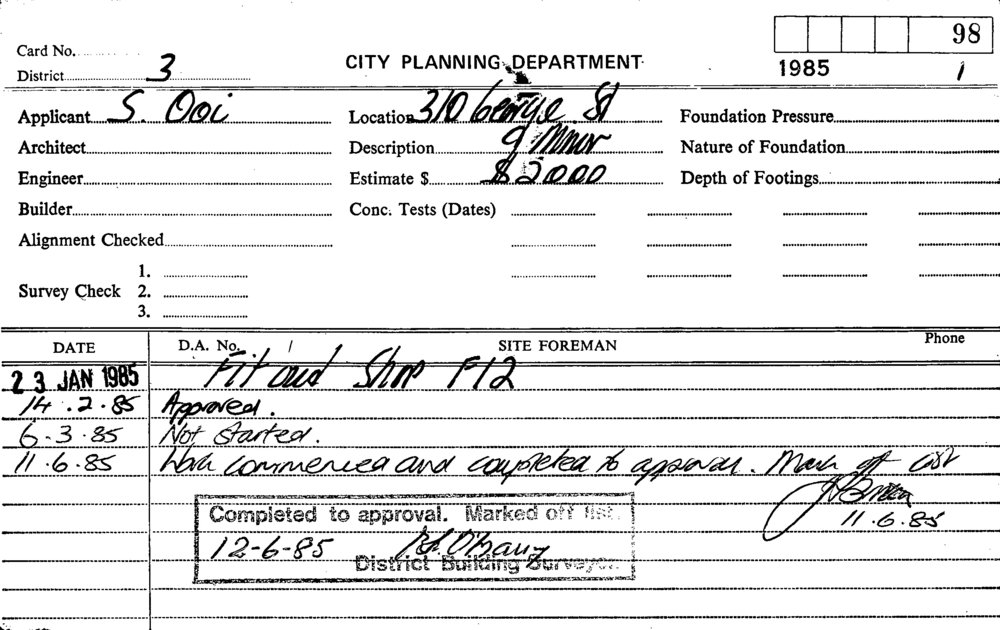 98
Card No.
District 3 CITY PLANNING DEPARTMENT 1985 1
Applicant S. Ooi Location 310 George St Foundation Pressure
Architect Description 9 Minor Nature of Foundation
Engineer Estimate $ $2000 Depth of Footings
Builder Conc. Tests (Dates)
Alignment Checked
1.
Survey Check 2.
3.
DATE D.A. No. / SITE FOREMAN Phone
23 JAN 1985 Fit out Shop F12
14.2.85 Approved.
6.3.85 Not started.
11.6.85 Work commenced and completed to approval. Mark off list
11.6.85
Completed to approval. Marked off list.
12-6-85
District Building Surveyor.